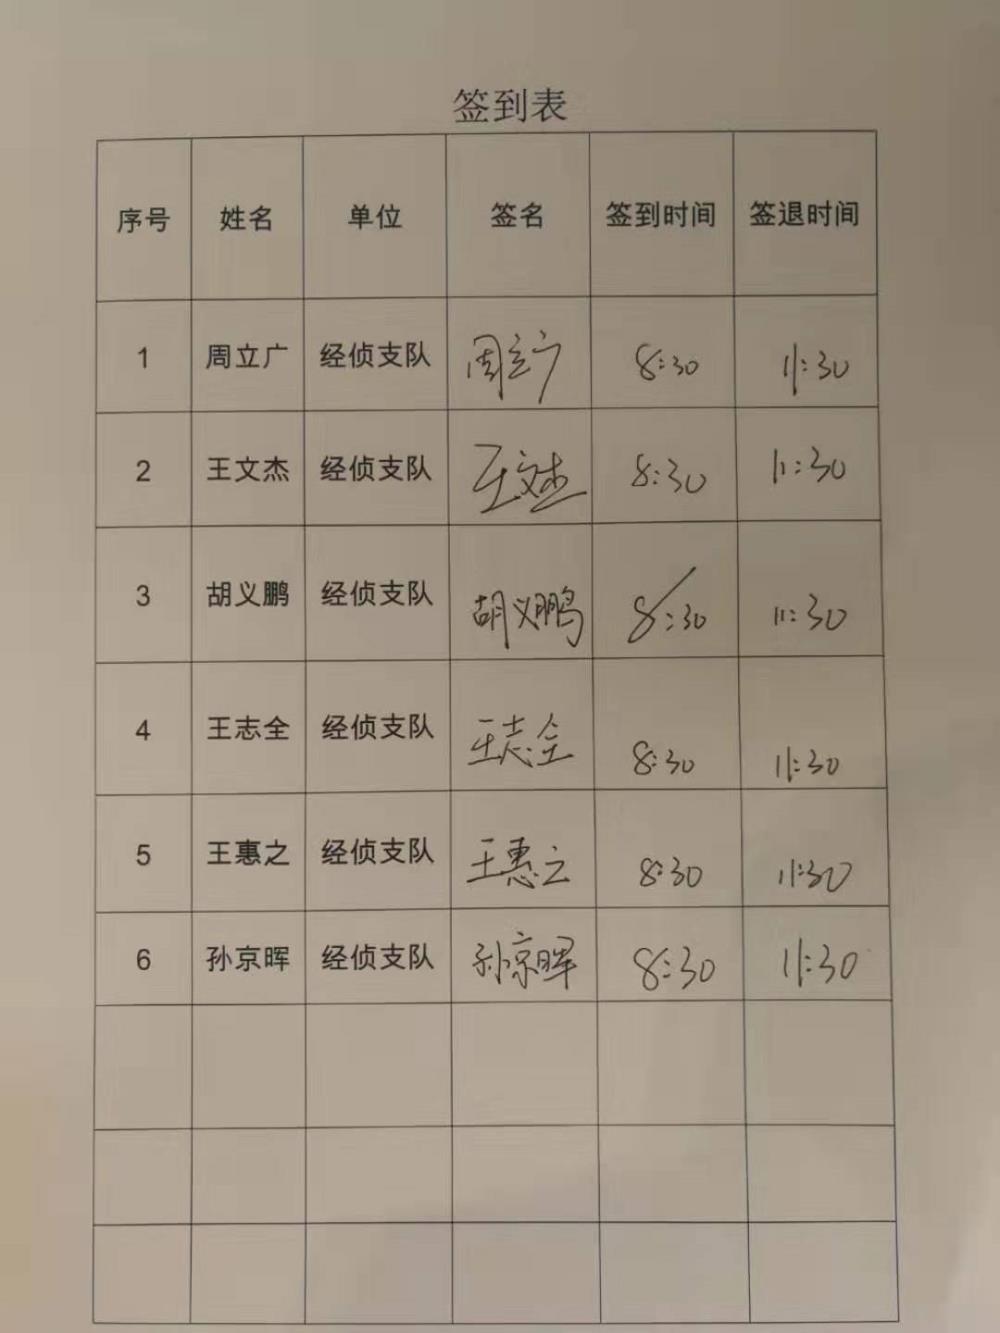 签到表
序号 姓名 单位 签名 签到时间 签退时间
1 周立广 经侦支队 周立广 8:30 11:30
2 王文杰 经侦支队 王文杰 8:30 11:30
3 胡义鹏 经侦支队 胡义鹏 8:30 11:30
4 王志全 经侦支队 王志全 8:30 11:30
5 王惠之 经侦支队 王惠之 8:30 11:30
6 孙京晖 经侦支队 孙京晖 8:30 11:30